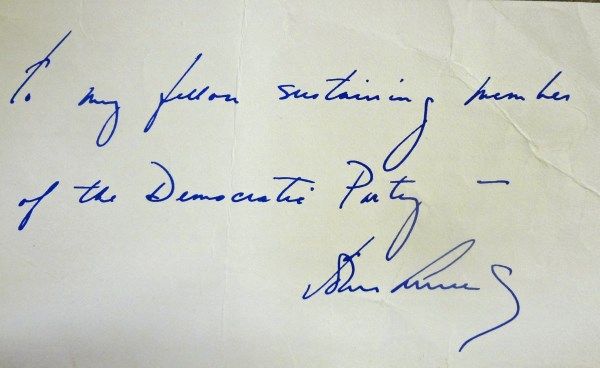 To my fellow sustaining member
of the Democratic Party —
John